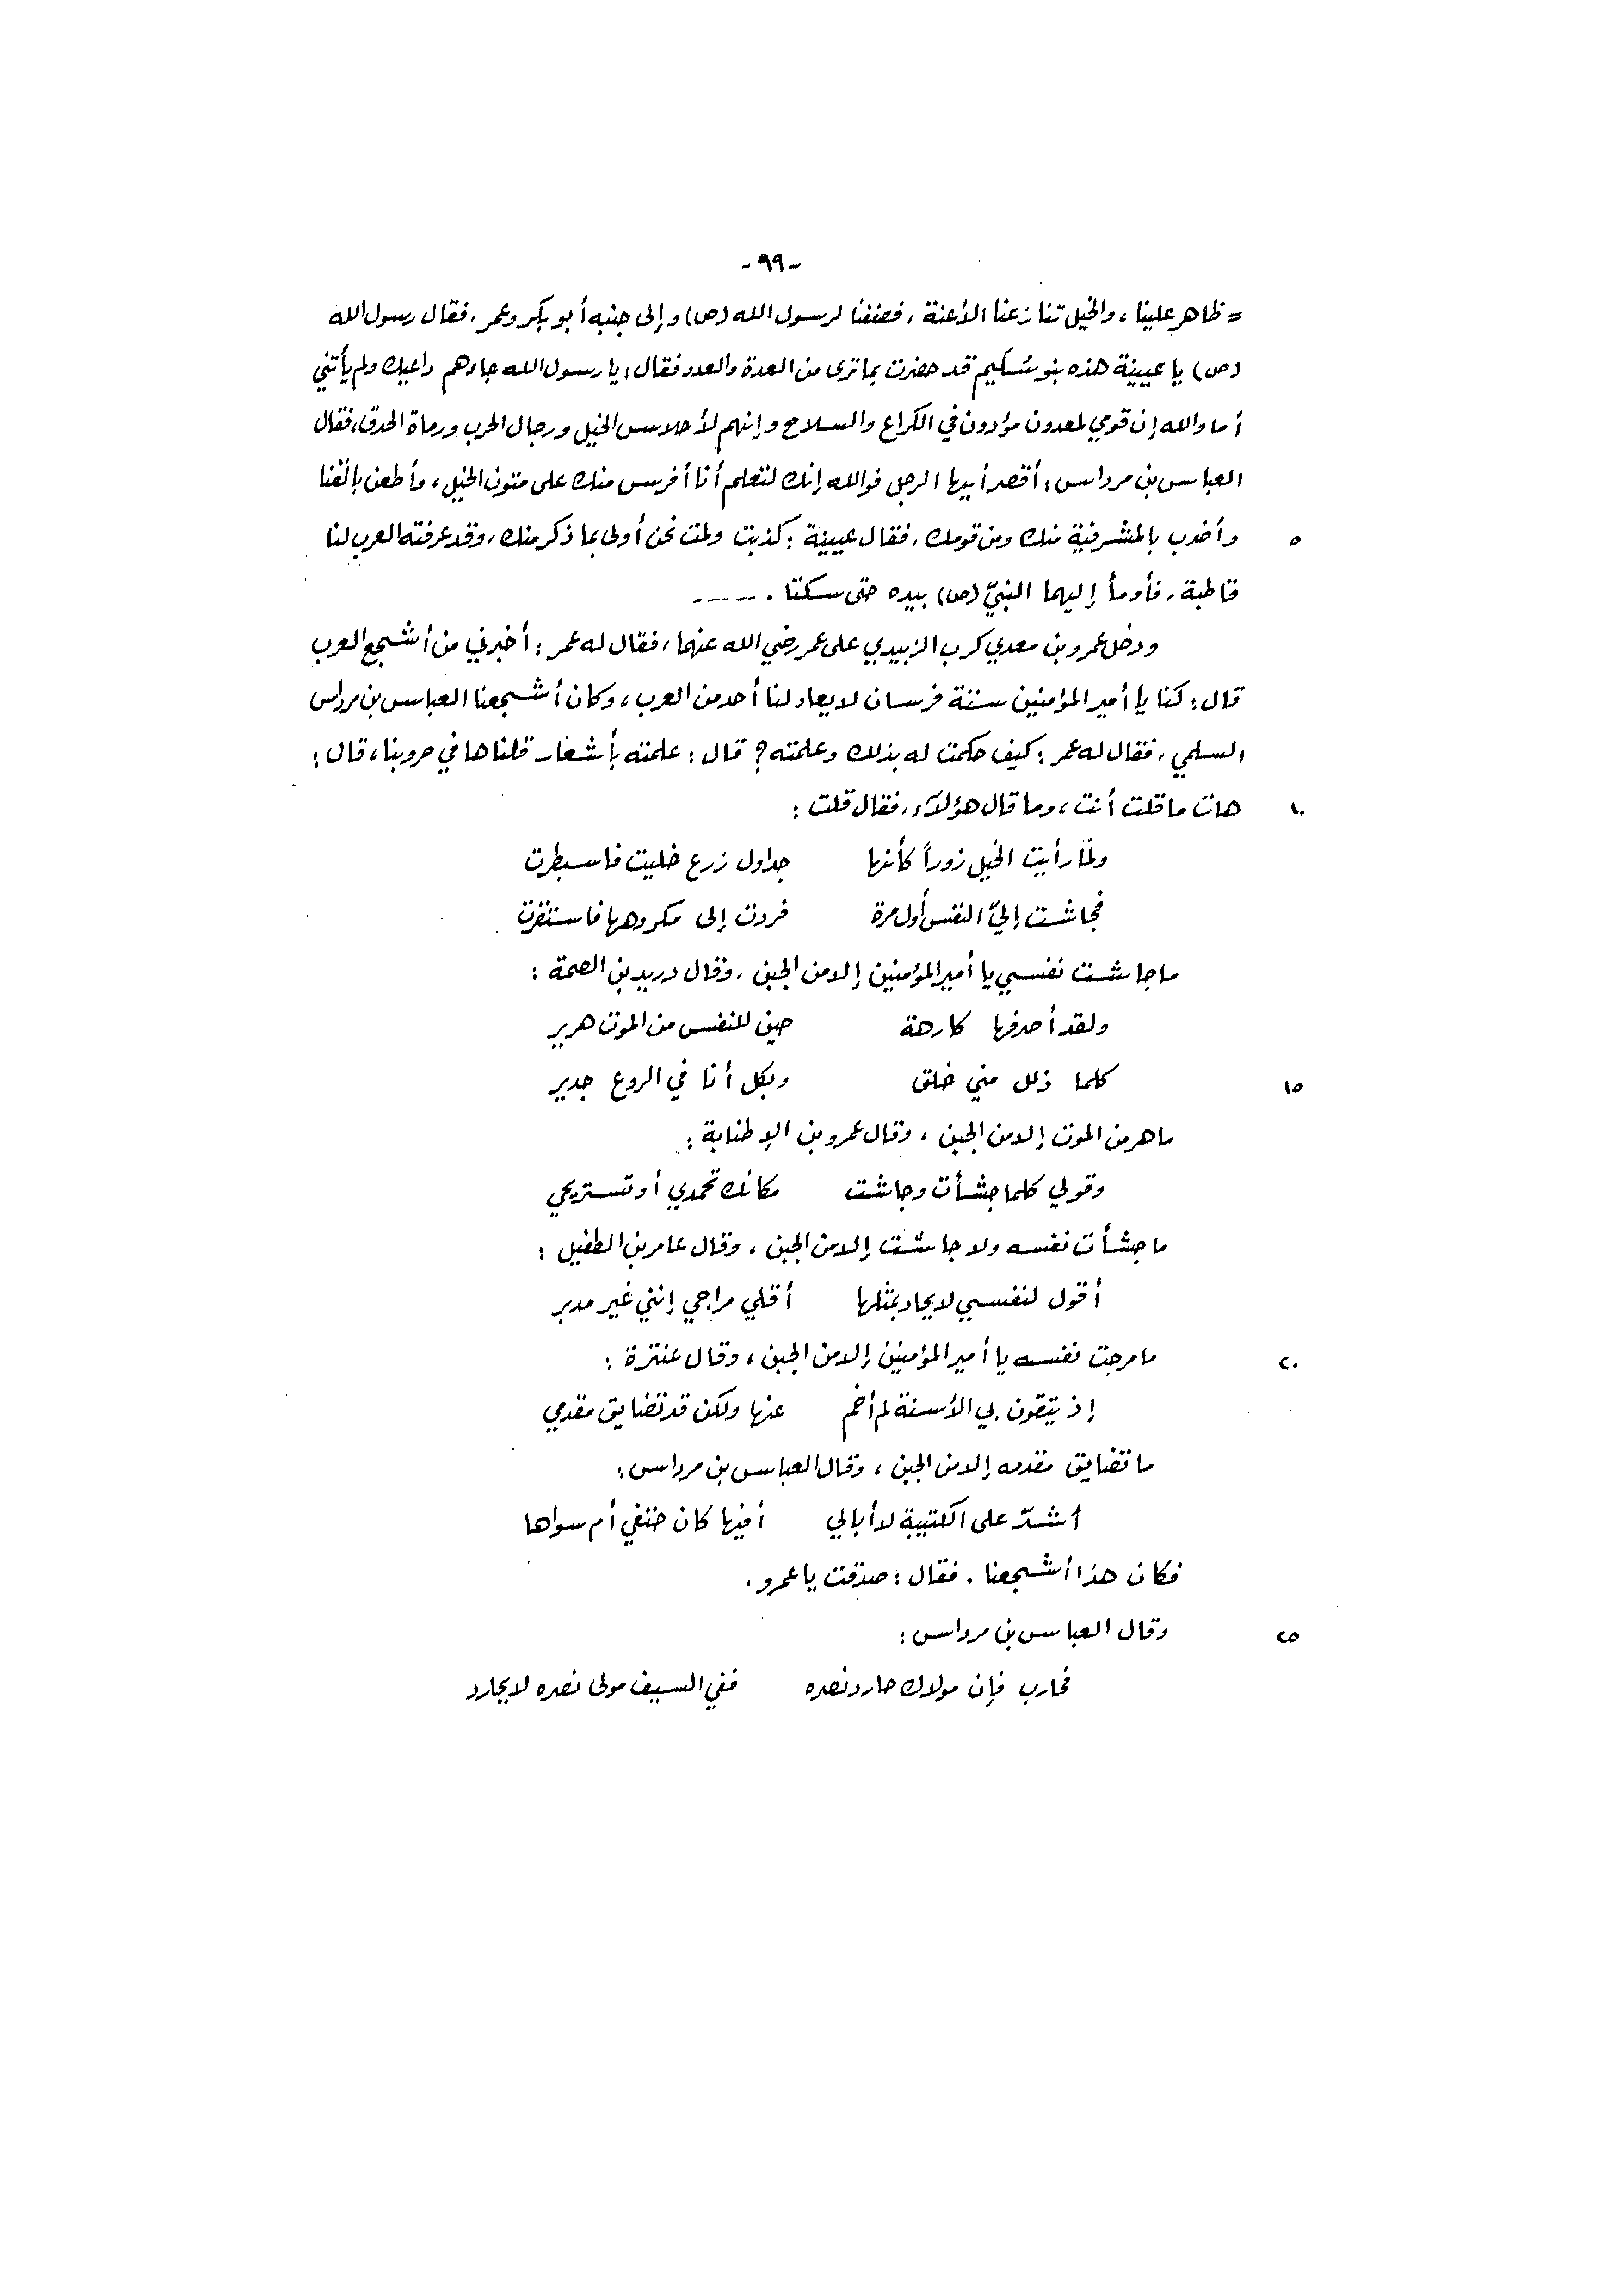 -٩٩-
= ظاهر علينا، والخيل تنازعنا الأعنة، فصففنا لرسول الله (ص) وإلى جنبه أبو بكر وعمر، فقال رسول الله
(ص) يا عيينة هذه بنو سُليم قد حضرت بما ترى من العدة والعدد فقال: يا رسول الله جاءهم داعيك ولم يأتني
أما والله إن قومي لمعدون مؤدون في الكراع والسلاح وإنهم لأحلاس الخيل ورجال الحرب ورماة الحدق، فقال
العباس بن مرداس: أقصر أيها الرجل فوالله إنك لتعلم أنا أفرس منك على متون الخيل، وأطعن بالقنا
٥ وأضرب بالمشرفية منك ومن قومك، فقال عيينة: كذبت ولمت نحن أولى بما ذكر منك، وقد عرفته العرب لنا
قاطبة، فأومأ إليهما النبيّ (ص) بيده حتى سكتا . ----
ودخل عمرو بن معدي كرب الزبيدي على عمر رضي الله عنهما، فقال له عمر: أخبرني من أشجع العرب
قال: كنا يا أمير المؤمنين ستة فرسان لا يعادلنا أحد من العرب، وكان أشجعنا العباس بن مرداس
السلمي، فقال له عمر: كيف حكمت له بذلك وعلمته؟ قال: علمته بأشعار قلناها في حروبنا، قال:
١٠ هات ما قلت أنت، وما قال هؤلآء، فقال قلت:
ولمّا رأيت الخيل زوراً كأنها جداول زرع خليت فاسبطرت
فجاشت إليّ النفس أول مرة فردت إلى مكروهها فاستقرت
ما جاشت نفسي يا أمير المؤمنين إلا من الجبن، وقال دريد بن الصمة:
ولقد أصرفها كارهة حين للنفس من الموت هرير
١٥ كلما ذلك مني خلق وبكل أنا في الروع جدير
ما هر من الموت إلا من الجبن، وقال عمرو بن الإطنابة:
وقولي كلما جشأت وجاشت مكانك تحمدي أو تستريحي
ما جشأت نفسه ولا جاشت إلا من الجبن، وقال عامر بن الطفيل:
أقول لنفسي لا يجاد بمثلها أقلي مراجي إنني غير مدبر
٢٠ ما مرجت نفسه يا أمير المؤمنين إلا من الجبن، وقال عنترة:
إذ يتقون بي الأسنة لم أخم عنها ولكن قد تضايق مقدمي
ما تضايق مقدمه إلا من الجبن، وقال العباس بن مرداس:
أشدّ على الكتيبة لا أبالي أفيها كان حتفي أم سواها
فكان هذا أشجعنا. فقال: صدقت يا عمرو.
٢٥ وقال العباس بن مرداس:
فحارب فإن مولاك حارد نصره ففي السيف مولى نصره لا يحارد